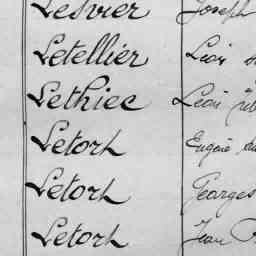 Lesvier Joseph
Letellier Léon
Lethiec Léon
Letorh Eugène
Letorh Georges
Letorh Jean